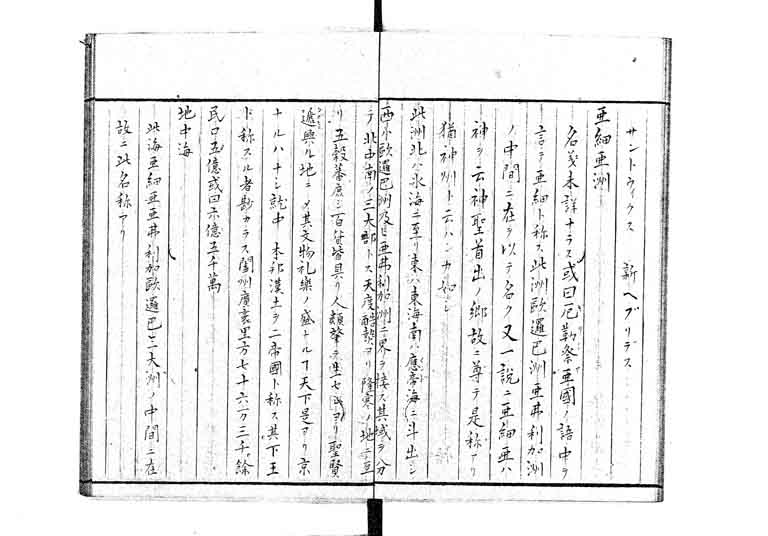 サントウィクス 新ヘブリデス
亜細亜洲
名義本詳ナラス或曰厄勒祭亜國ノ語中ヲ
言テ亜細ト称ス此洲歐邏巴洲亜弗利加洲
ノ中間ニ在ヲ以テ名ク又一説ニ亜細亜ハ
神ヲ云神聖首出ノ郷故ニ尊テ是称アリ
猶神州ト云ハンカ如シ
此洲北ハ氷海ニ至リ東ハ東海南ハ應帝海ニ斗出シ
西ハ歐邏巴洲及ヒ亜弗利加州ニ界ヲ接ス其域ヲ分
テ北中南ノ三大部トス天度酷熱ヨリ隆寒ノ地ニ至
リ五穀蕃庶シ百貨皆具リ人類肇テ生セシヨリ聖賢
遞興ル地ニメ其文物礼樂ノ盛ナルヿ天下是ヨリ京
ナルハナシ就中本邦漢土ヲ二帝國ト称ス其下王
ト称スル者尠カラス闔州廣袤里方七十六万三千餘
民口五億或曰六億五千萬
地中海
此海亜細亜亜弗利加歐邏巴三大洲ノ中間ニ在
故ニ此名称アリ